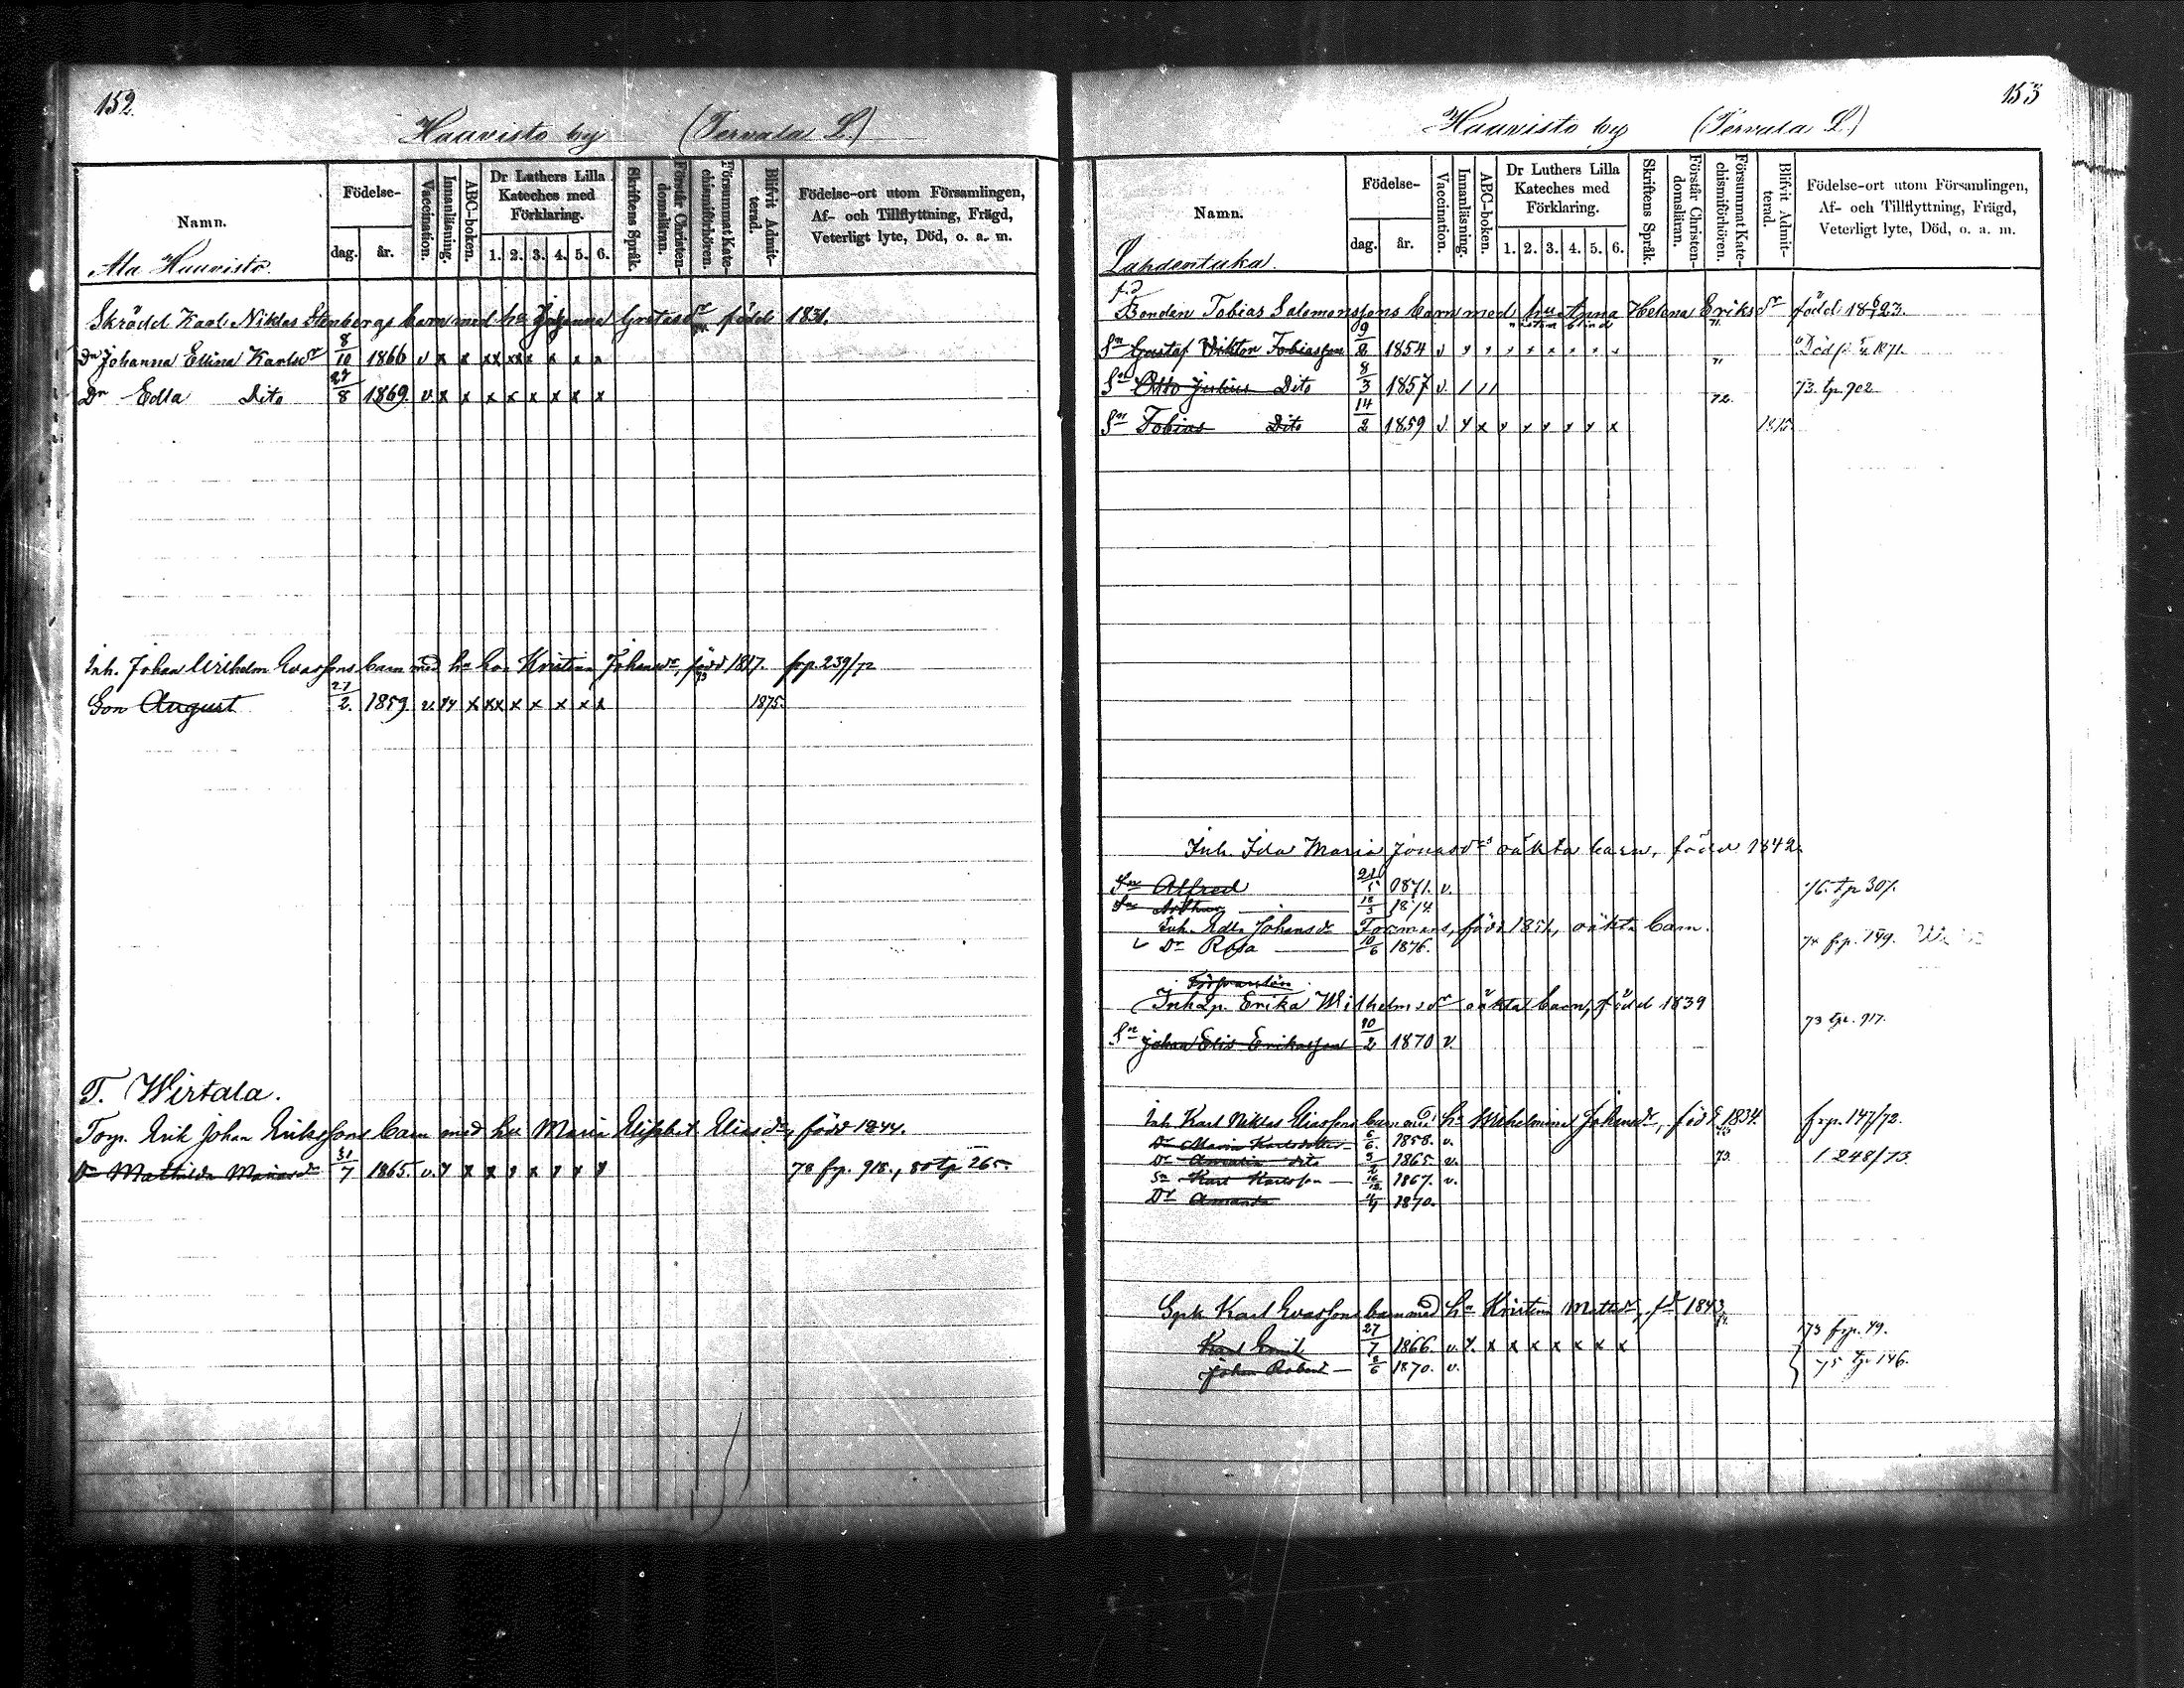 152.
Hauvisto by (Tervala L.)
Namn.
Födelse-
dag. år.
Vaccination.
Innanläsning.
ABC-boken.
Dr Luthers Lilla Kateches med Förklaring.
1. 2. 3. 4. 5. 6.
Skriftens Språk.
Förstår Christendomsläran.
Försummat Katechismiförhören.
Blifvit Admitterad.
Födelse-ort utom Församlingen,
Af- och Tillflyttning, Frägd,
Veterligt lyte, Död, o. a. m.
Ala Hauvisto.
Skrädd Karl Niklas Stenbergs barn med hu Johanna Gretasdr född 1831.
Dr Johanna Elina Karlsdr 8/10 1866 v x x xx xx x x x x
Dr Edla Dito 27/8 1869 v x x x x x x x x
Inh. Johan Wilhelm Evassons barn med hu Eva Kristina Johansdr, född 1817. frp. 239/72
Son August 27/2. 1859 v. x x xx x x x x x 1875.
T. Wirtala.
Torp. Erik Johan Erikssons barn med hu Maria Elisabet Eliasdr, född 1844.
Dr Mathilda Mariasdr 31/7 1865. v. x x x x x x x x 78 frp. 918., 80 tp 265.
153
Hauvisto by (Tervala L.)
Namn.
Födelse-
dag. år.
Vaccination.
Innanläsning.
ABC-boken.
Dr Luthers Lilla Kateches med Förklaring.
1. 2. 3. 4. 5. 6.
Skriftens Språk.
Förstår Christendomsläran.
Försummat Katechismiförhören.
Blifvit Admitterad.
Födelse-ort utom Församlingen,
Af- och Tillflyttning, Frägd,
Veterligt lyte, Död, o. a. m.
Lahdentaka.
f.d
Bonden Tobias Salomonssons barn med hu Anna Helena Eriksdr född 1823.
Sn Gustaf Viktor Tobiasson 9/2 1854 v 71. Död 1871.
Sn Otto Julius Dito 8/3 1857 v. 71 73. tp. 902
Sn Tobias Dito 14/2 1859 v. x x x x x x x x 72. 1875.
Inh. Ida Maria Jonasdrs oäkta barn, född 1842.
Sn Alfred 21/5 1871. v. 76. tp 307.
Sn Arthur 18/3 1874.
Inh. Edla Johansdr Formans, född 1851, oäkta barn.
Dr Rosa 10/6 1876. 78 frp. 149.
Inhp. Erika Wilhelmsdr oäkta barn, född 1839
Sn Johan Elis Erikasson 20/2 1870 v. 73 tp. 917.
Inh. Karl Niklas Eliassons barn med hu Wilhelmina Johansdr, född 1834. frp. 147/72.
Dr Maria Karlsdotter 6/6. 1858. v.
Dr Amalia dito 3/2 1865. v. 73. 1 248/73.
Sn Karl Karlsson 16/12. 1867. v.
Dr Amanda 4/4 1870.
Spk. Karl Evassons barn med hu Kristina Mattsdr, fd 1843.
Karl Emil 27/7 1866. v. x. x x x x x x x 73 frp. 49.
Johan Robert 8/6 1870. v. 75 tp 146.